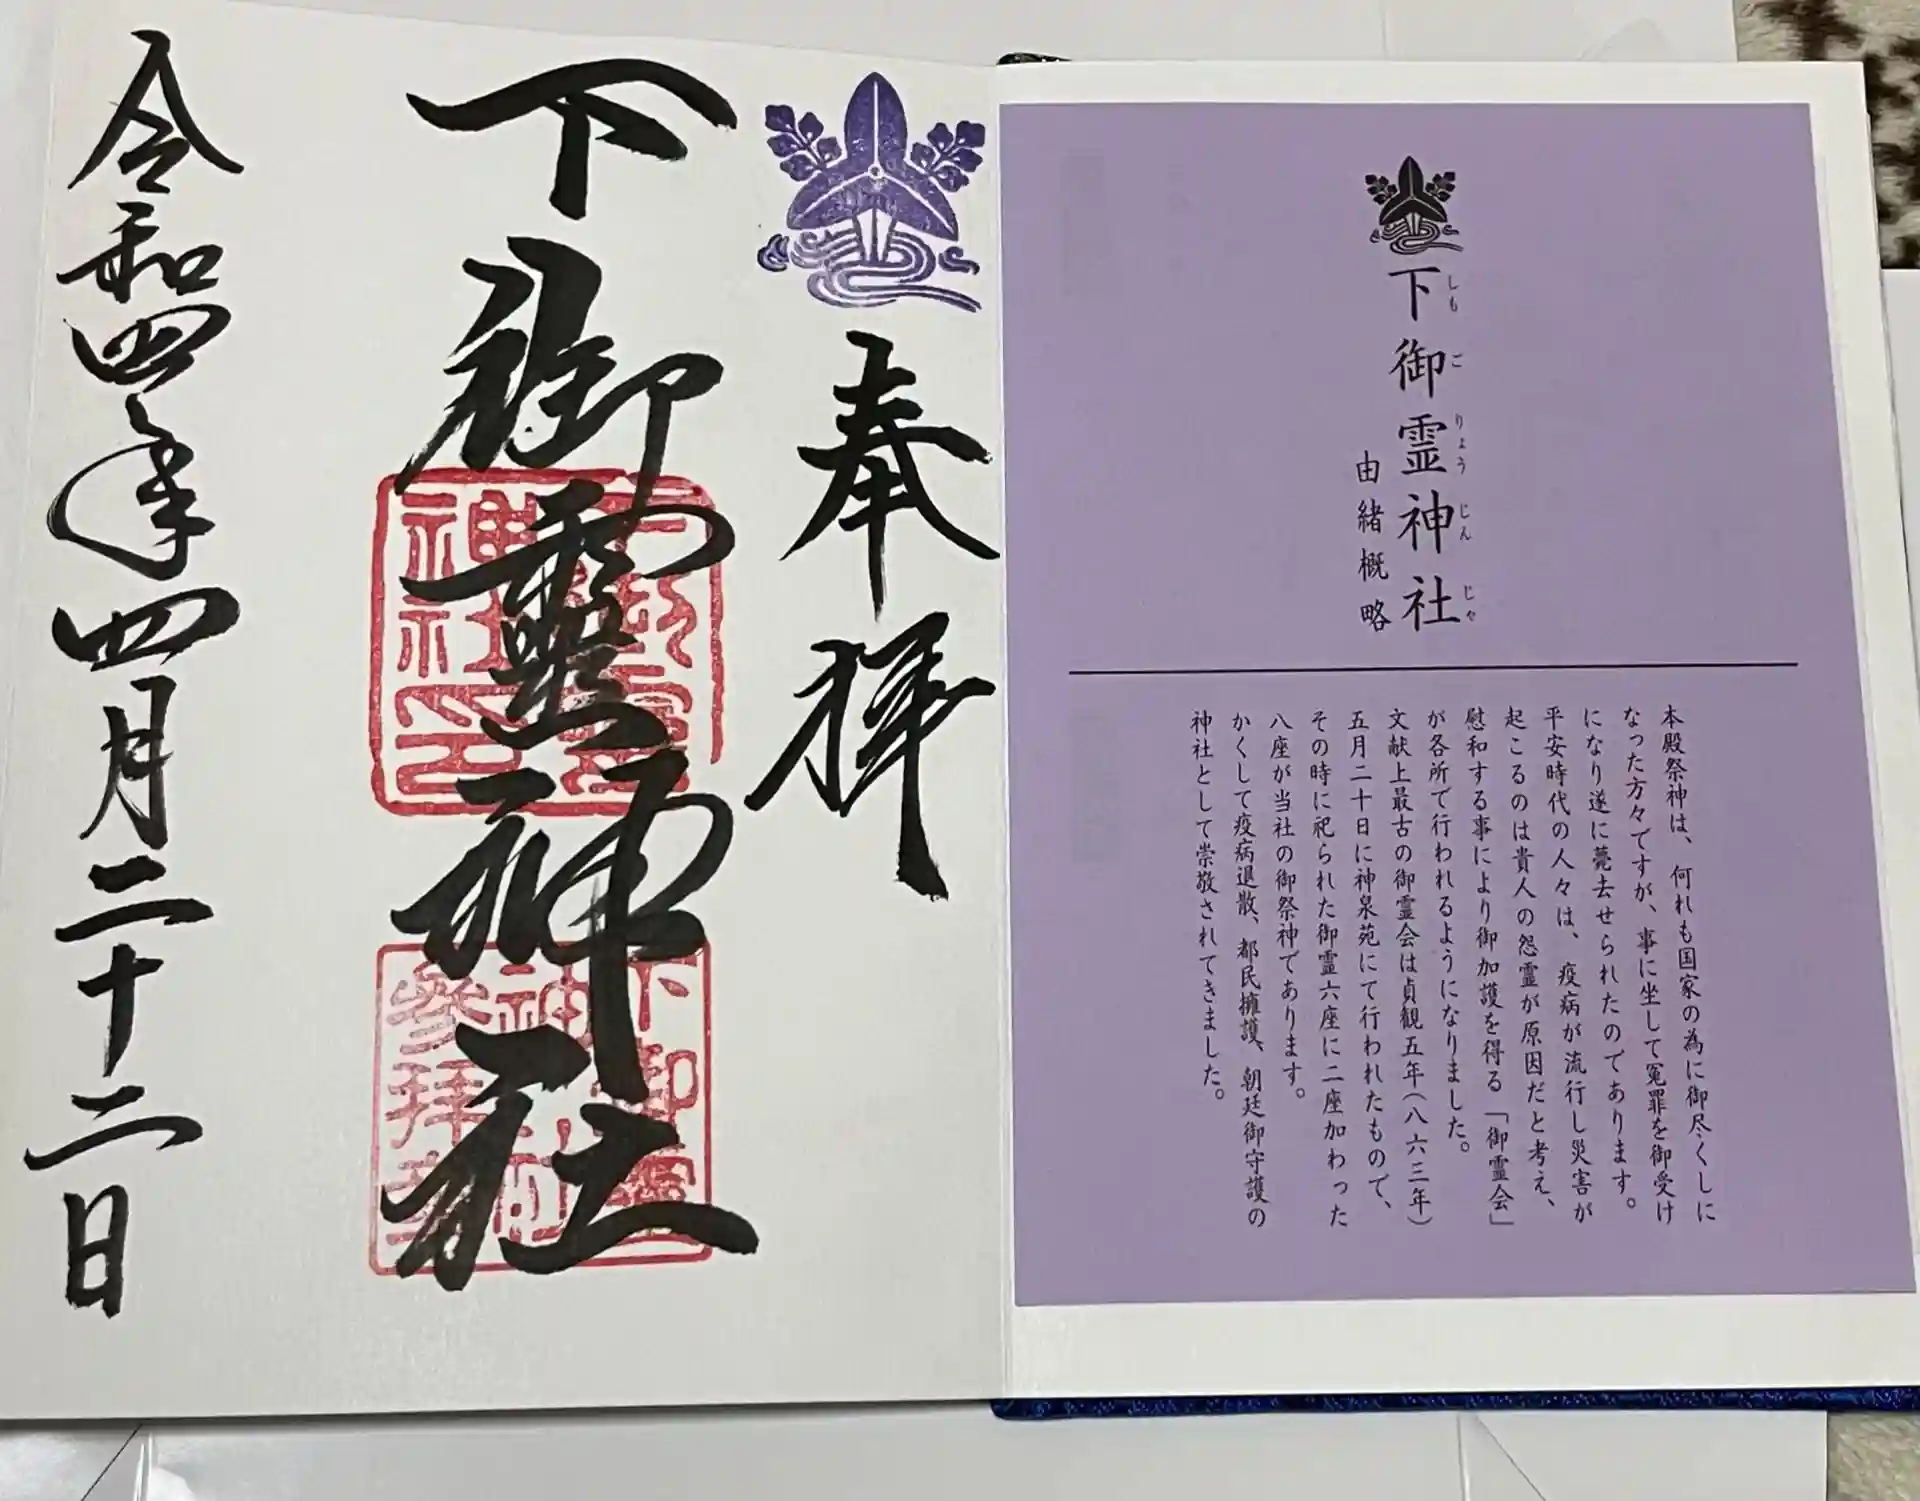 下御霊神社
しもごりょうじんじゃ
由緒概略
本殿祭神は、何れも国家の為に御尽くしに
なった方々ですが、事に坐して冤罪を御受け
になり遂に薨去せられたのであります。
平安時代の人々は、疫病が流行し災害が
起こるのは貴人の怨霊が原因だと考え、
慰和する事により御加護を得る「御霊会」
が各所で行われるようになりました。
文献上最古の御霊会は貞観五年(八六三年)
五月二十日に神泉苑にて行われたもので、
その時に祀られた御霊六座に二座加わった
八座が当社の御祭神であります。
かくして疫病退散、都民擁護、朝廷御守護の
神社として崇敬されてきました。
奉拝
下御霊神社
令和四年四月二十二日